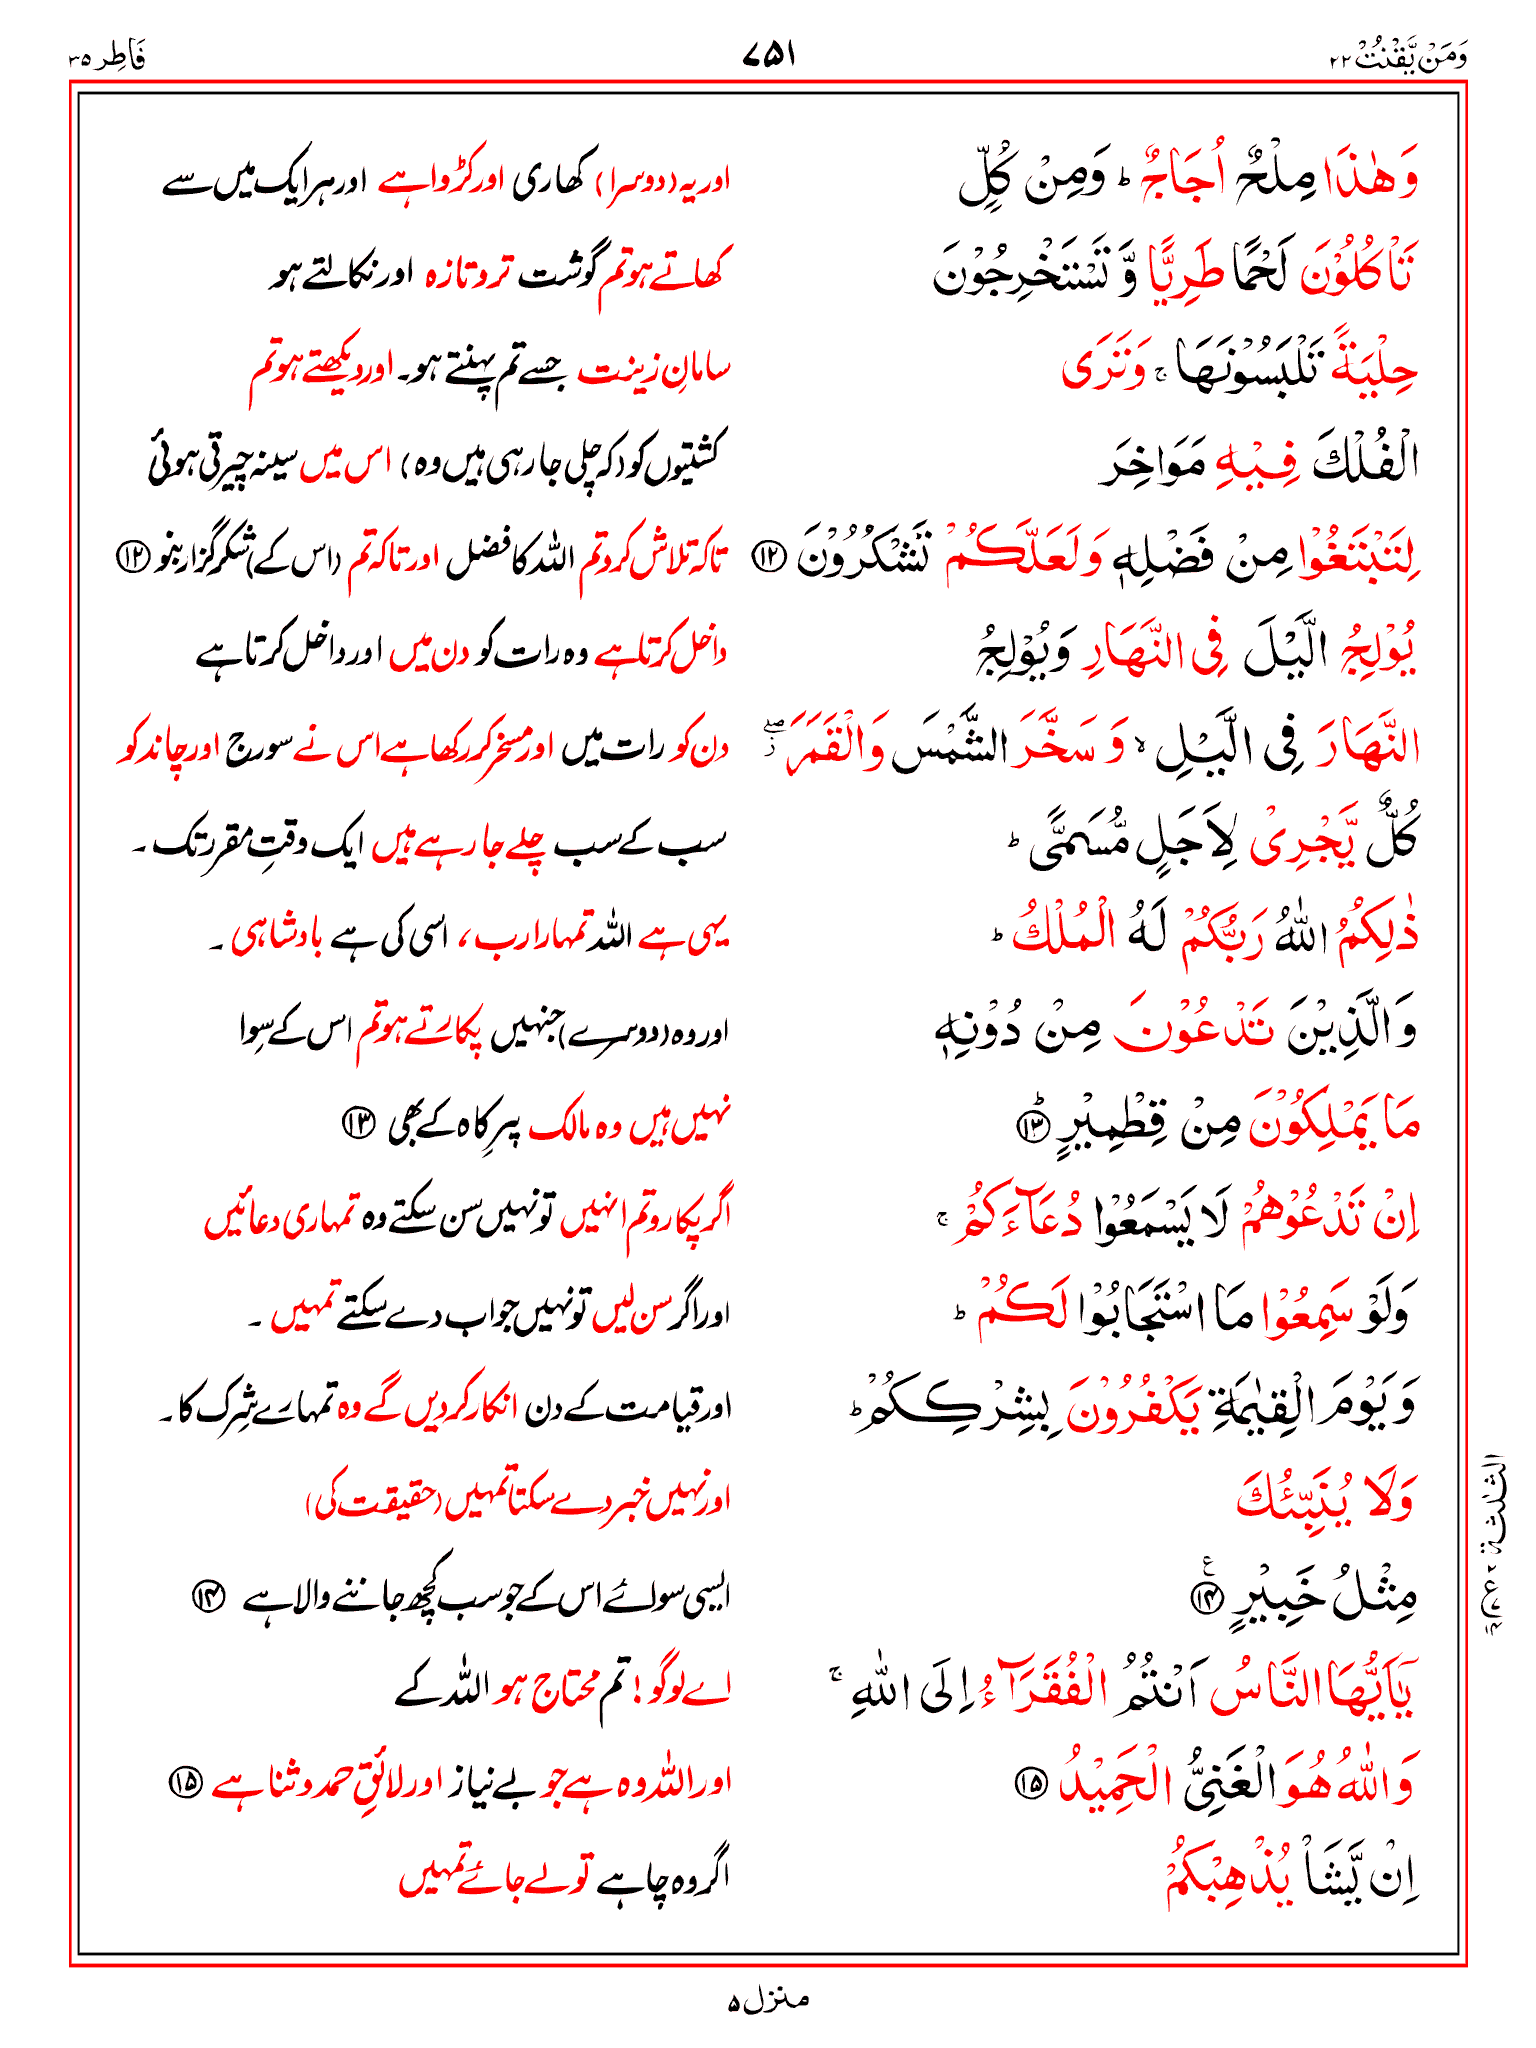 وَمَنْ يَّقْنُتْ ۲۲ ۷۵۱ فَاطِر ۳۵
وَهٰذَا مِلْحٌ اُجَاجٌ ؕ وَمِنْ كُلٍّ اور یہ (دوسرا) کھاری اور کڑوا ہے اور ہر ایک میں سے
تَاْكُلُوْنَ لَحْمًا طَرِيًّا وَّ تَسْتَخْرِجُوْنَ کھاتے ہو تم گوشت تروتازہ اور نکالتے ہو
حِلْيَةً تَلْبَسُوْنَهَا ۚ وَتَرَى سامانِ زینت جسے تم پہنتے ہو۔ اور دیکھتے ہو تم
الْفُلْكَ فِيْهِ مَوَاخِرَ کشتیوں کو (کہ چلی جا رہی ہیں وہ) اس میں سینہ چیرتی ہوئی
لِتَبْتَغُوْا مِنْ فَضْلِهٖ وَلَعَلَّكُمْ تَشْكُرُوْنَ ۱۲ تاکہ تلاش کرو تم اللہ کا فضل اور تاکہ تم (اس کے) شکر گزار بنو ۱۲
يُوْلِجُ الَّيْلَ فِى النَّهَارِ وَيُوْلِجُ داخل کرتا ہے وہ رات کو دن میں اور داخل کرتا ہے
النَّهَارَ فِى الَّيْلِ ۙ وَ سَخَّرَ الشَّمْسَ وَالْقَمَرَ ۖ ز دن کو رات میں اور مسخر کر رکھا ہے اس نے سورج اور چاند کو
كُلٌّ يَّجْرِىْ لِاَجَلٍ مُّسَمًّى ؕ سب کے سب چلے جا رہے ہیں ایک وقتِ مقرر تک ۔
ذٰلِكُمُ اللّٰهُ رَبُّكُمْ لَهُ الْمُلْكُ ؕ یہی ہے اللہ تمہارا رب، اسی کی ہے بادشاہی ۔
وَالَّذِيْنَ تَدْعُوْنَ مِنْ دُوْنِهٖ اور وہ (دوسرے) جنہیں پکارتے ہو تم اس کے سِوا
مَا يَمْلِكُوْنَ مِنْ قِطْمِيْرٍ ؕ ۱۳ نہیں ہیں وہ مالک پرِ کاہ کے بھی ۱۳
اِنْ تَدْعُوْهُمْ لَا يَسْمَعُوْا دُعَآءَكُمْ ۚ اگر پکارو تم انہیں تو نہیں سن سکتے وہ تمہاری دعائیں
وَلَوْ سَمِعُوْا مَا اسْتَجَابُوْا لَكُمْ ؕ اور اگر سن لیں تو نہیں جواب دے سکتے تمہیں ۔
وَيَوْمَ الْقِيٰمَةِ يَكْفُرُوْنَ بِشِرْكِكُمْ ؕ اور قیامت کے دن انکار کر دیں گے وہ تمہارے شِرک کا۔
وَلَا يُنَبِّئُكَ اور نہیں خبر دے سکتا تمہیں (حقیقت کی)
مِثْلُ خَبِيْرٍ ۱۴ ع ایسی سوائے اس کے جو سب کچھ جاننے والا ہے ۱۴
يٰۤاَيُّهَا النَّاسُ اَنْتُمُ الْفُقَرَآءُ اِلَى اللّٰهِ ۚ اے لوگو! تم محتاج ہو اللہ کے
وَاللّٰهُ هُوَ الْغَنِىُّ الْحَمِيْدُ ۱۵ اور اللہ وہ ہے جو بے نیاز اور لائقِ حمد و ثنا ہے ۱۵
اِنْ يَّشَاْ يُذْهِبْكُمْ اگر وہ چاہے تو لے جائے تمہیں
الثلثة
منزل ۵